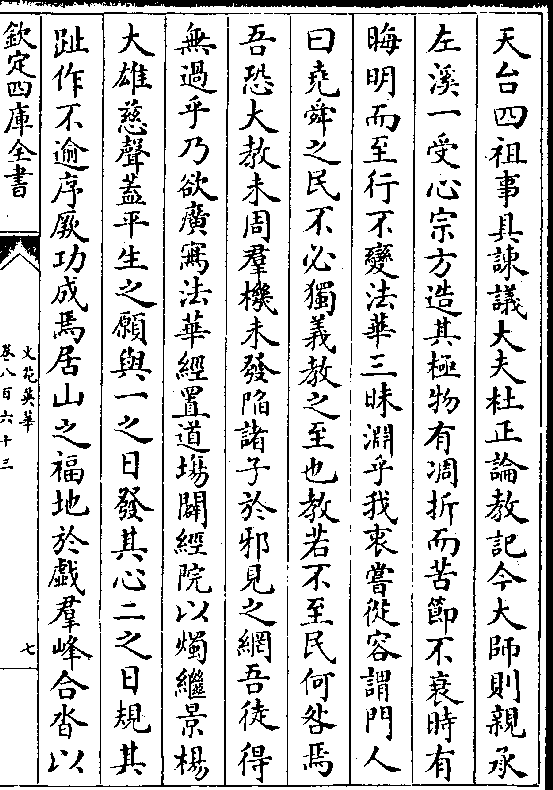 天台四祖事具諫議大夫杜正論教記今大師則親承
左溪一受心宗方造其極物有凋折而苦節不衰時有
晦明而至行不變法華三昧淵乎我衷嘗從容謂門人
曰堯舜之民不必獨義教之至也教若不至民何咎焉
吾恐大教未周羣機未發陷諸子於邪見之網吾徒得
無過乎乃欲廣寫法華經置道場闢經院以燭繼景楊
大雄慈聲蓋平生之願與一之日發其心二之日規其
趾作不逾序厥功成焉居山之福地於戲羣峰合沓以
欽定四庫全書
文苑英華
卷八百六十三
七